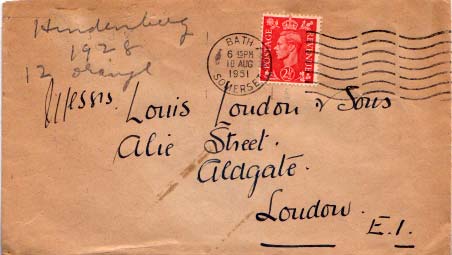 Hindenburg
1928
12
BATH
6 15PM
18 AUG
1951
SOMERSET
POSTAGE
REVENUE
2½
Messrs. Louis London & Sons
Alie Street.
Aldgate.
London.
E.1.